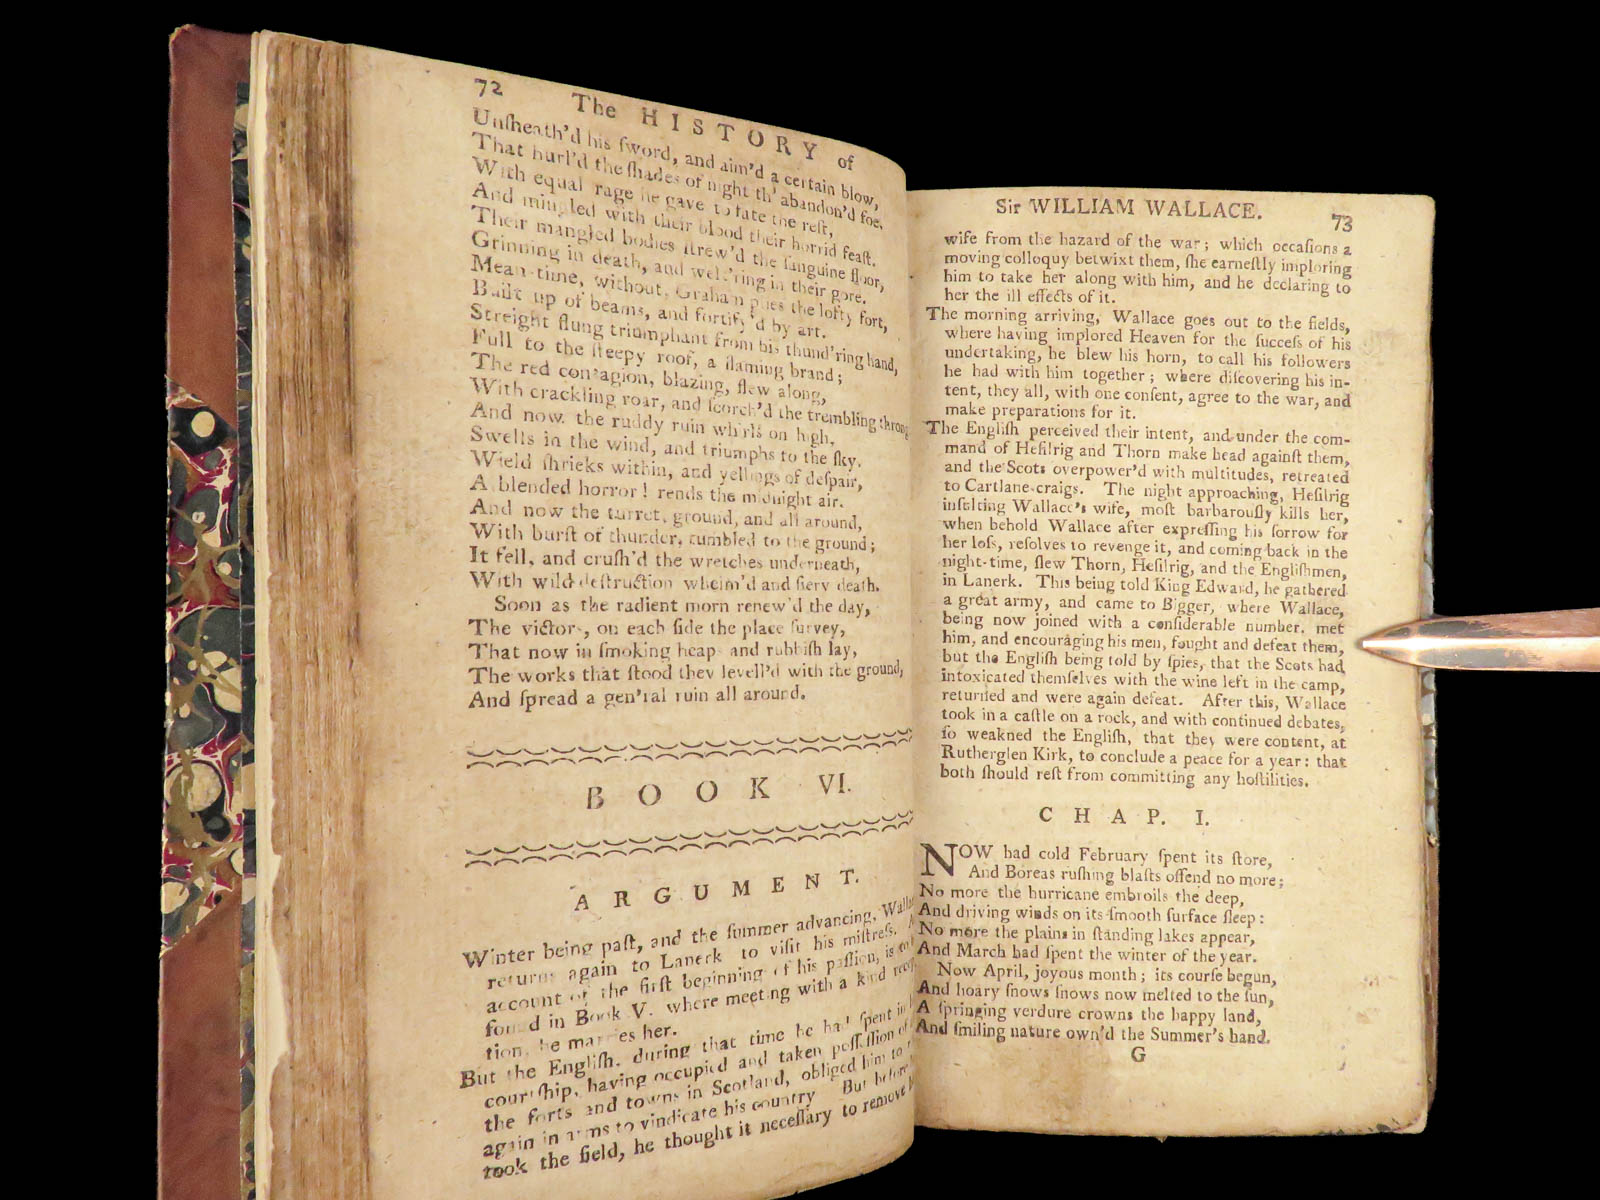 72
The HISTORY of
Unſheath'd his ſword, and aim'd a certain blow,
That hurl'd the ſhades of night th' abandon'd foe.
With equal rage he gave to fate the reſt,
And mingled with their blood their horrid feaſt.
Their mangled bodies ſtrew'd the ſanguine floor,
Grinning in death, and welt'ring in their gore.
Mean-time, without, Graham plies the lofty fort,
Built up of beams, and fortify'd by art.
Streight flung triumphant from his thund'ring hand,
Full to the ſteepy roof, a flaming brand;
The red contagion, blazing, flew along,
With crackling roar, and ſcorch'd the trembling throng
And now, the ruddy ruin whirls on high,
Swells in the wind, and triumphs to the ſky.
Wield ſhrieks within, and yellings of deſpair,
A blended horror! rends the midnight air.
And now the turret, ground, and all around,
With burſt of thunder, tumbled to the ground;
It fell, and cruſh'd the wretches underneath,
With wild deſtruction whelm'd and fiery death.
Soon as the radient morn renew'd the day,
The victors, on each ſide the place ſurvey,
That now in ſmoking heaps and rubbiſh lay,
The works that ſtood they levell'd with the ground,
And ſpread a gen'ral ruin all around.
BOOK VI.
ARGUMENT.
Winter being paſt, and the ſummer advancing,
returns again to Lanerk to viſit his miſtreſs.
account of the firſt beginning of his paſſion, is
found in Book V. where meeting with a kind
tion, he marries her.
But the Engliſh, during that time he had ſpent in
courtſhip, having occupied and taken poſſeſſion of
the forts and towns in Scotland, obliged him to
again in arms to vindicate his country. But before
took the field, he thought it neceſſary to remove
Sir WILLIAM WALLACE.
73
wife from the hazard of the war; which occaſions a
moving colloquy betwixt them, ſhe earneſtly imploring
him to take her along with him, and he declaring to
her the ill effects of it.
The morning arriving, Wallace goes out to the fields,
where having implored Heaven for the ſucceſs of his
undertaking, he blew his horn, to call his followers
he had with him together; where diſcovering his in-
tent, they all, with one conſent, agree to the war, and
make preparations for it.
The Engliſh perceived their intent, and under the com-
mand of Heſilrig and Thorn make head againſt them,
and the Scots overpower'd with multitudes, retreated
to Cartlane-craigs. The night approaching, Heſilrig
inſulting Wallace's wife, moſt barbarouſly kills her,
when behold Wallace after expreſſing his ſorrow for
her loſs, reſolves to revenge it, and coming back in the
night-time, ſlew Thorn, Heſilrig, and the Engliſhmen,
in Lanerk. This being told King Edward, he gathered
a great army, and came to Bigger, where Wallace,
being now joined with a conſiderable number, met
him, and encouraging his men, fought and defeat them,
but the Engliſh being told by ſpies, that the Scots had
intoxicated themſelves with the wine left in the camp,
returned and were again defeat. After this, Wallace
took in a caſtle on a rock, and with continued debates,
ſo weakned the Engliſh, that they were content, at
Rutherglen Kirk, to conclude a peace for a year: that
both ſhould reſt from committing any hoſtilities.
CHAP. I.
NOW had cold February ſpent its ſtore,
And Boreas ruſhing blaſts offend no more;
No more the hurricane embroils the deep,
And driving winds on its ſmooth ſurface ſleep:
No more the plains in ſtanding lakes appear,
And March had ſpent the winter of the year.
Now April, joyous month; its courſe begun,
And hoary ſnows ſnows now melted to the ſun,
A ſpringing verdure crowns the happy land,
And ſmiling nature own'd the Summer's hand.
G